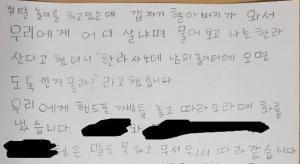 줄넘기 놀이를 하고있는데 갑자기 할아버지가 와서
우리에게 어디 살냐며 물어보고 나는 한라
산다고 했더니 "한라 사는데 남의 놀이터에 오면
도둑인거 몰라?" 라고 했습니다
우리에게 핸드폰, 가방을 놓고 따라오라며 화를
냈습니다. 와
형은 말도 못하고 무서워서 따라갔습니다